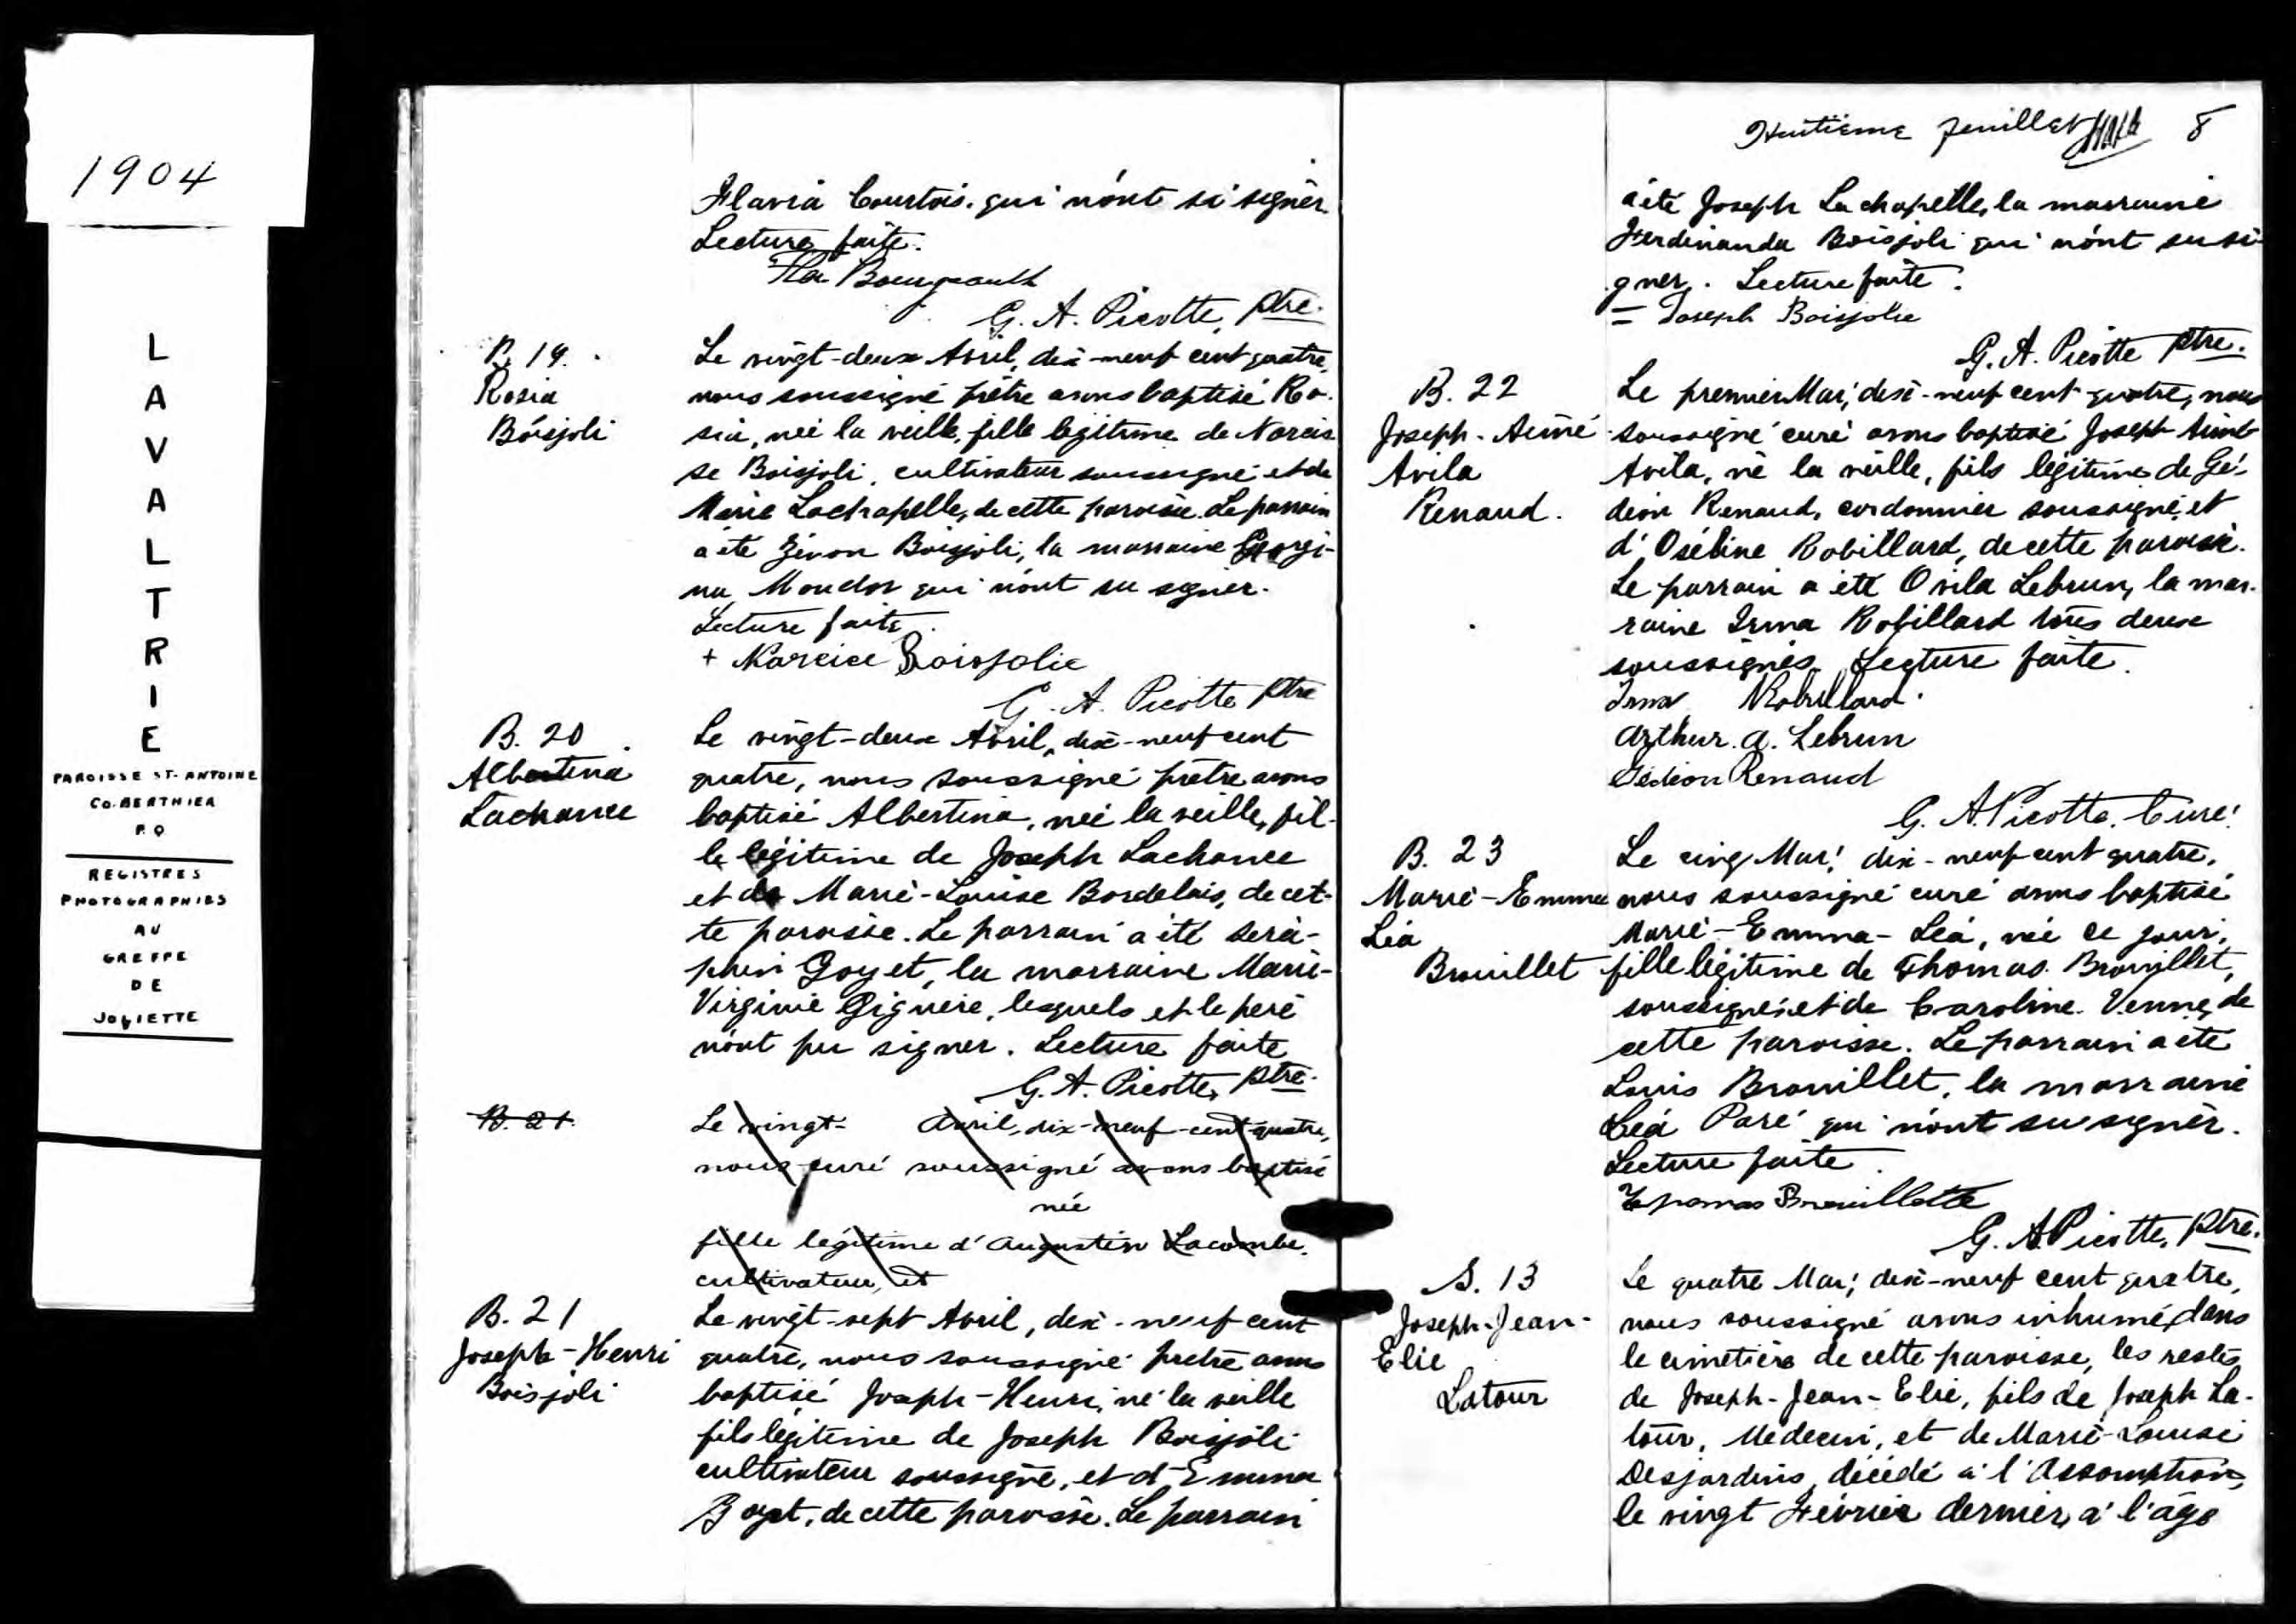 1904
LAVALTRIE
PAROISSE ST-ANTOINE
CO. BERTHIER
P Q
REGISTRES
PHOTOGRAPHIES
AU
GREFFE
DE
JOLIETTE
Flavia Courtois. qui n'ont si signer.
Lecture faite.
Bourgeault
G. A. Picotte, ptre.
B. 19.
Rosia
Boisjoli
Le vingt-deux Avril, dix-neuf cent quatre,
nous soussigné prêtre avons baptisé Ro-
sia, née la veille, fille legitime de Narcis
se Boisjoli, cultivateur soussigné et de
Marie Lachapelle, de cette paroisse. Le parrain
a été Zénon Boisjoli, la marraine Georgi-
na Mondor qui n'ont su signer.
Lecture faite.
+ Narcice Boisjolie
G. A. Picotte ptre
B. 20
Albertina
Lachance
Le vingt-deux Avril, dix-neuf cent
quatre, nous soussigné prêtre avons
baptisé Albertina, née la veille, fil-
le légitime de Joseph Lachance
et de Marie-Louise Bordelais, de cet-
te paroisse. Le parrain a été Séra-
phin Goyet, la marraine Marie-
Virginie Giguère, lesquels et le père
n'ont pu signer. Lecture faite
G. A. Picotte, ptre.
B. 21.
Le vingt- Avril, dix-neuf-cent-quatre,
nous curé soussigné avons baptisé
née
fille légitime d'Augustin Lacombe,
cultivateur, et
B. 21
Joseph-Henri
Boisjoli
Le vingt-sept Avril, dix-neuf cent
quatre, nous soussigné prêtre avons
baptisé Joseph-Henri, né la veille
fils légitime de Joseph Boisjoli
cultivateur soussigné, et d'Emma
de cette paroisse. Le parrain
Huitième feuillet 8
a été Joseph Lachapelle, la marraine
Ferdinanda Boisjoli qui n'ont su si-
gner. Lecture faite.
= Joseph Boisjolie
G. A. Picotte ptre.
B. 22
Joseph-Aimé
Avila
Renaud.
Le premier Mai, dix-neuf cent quatre, nous
soussigné curé avons baptisé Joseph Aimé
Avila, né la veille, fils légitime de Gé-
déon Renaud, cordonnier soussigné, et
d'Oséline Robillard, de cette paroisse.
Le parrain a été Ovila Lebrun, la mar-
raine Irma Robillard tous deux
soussignés. Lecture faite.
Irma Robillard.
Arthur. A. Lebrun
Gédéon Renaud
G. A. Picotte, Curé.
B. 23
Marie-Emma
Léa
Brouillet
Le cinq Mai, dix-neuf cent quatre,
nous soussigné curé avons baptisé
Marie-Emma-Léa, née ce jour,
fille légitime de Thomas Brouillet,
soussigné, et de Caroline Venne, de
cette paroisse. Le parrain a été
Louis Brouillet, la marraine
Léa Paré qui n'ont su signer.
Lecture faite.
Thomas Brouillette
G. A. Picotte, ptre.
S. 13
Joseph-Jean-
Elie
Latour
Le quatre Mai, dix-neuf cent quatre,
nous soussigné avons inhumé, dans
le cimetière de cette paroisse, les restes
de Joseph-Jean-Elie, fils de Joseph La-
tour, Médecin, et de Marie-Louise
Desjardins, décédé à l'Assomption,
le vingt Février dernier, à l'âge